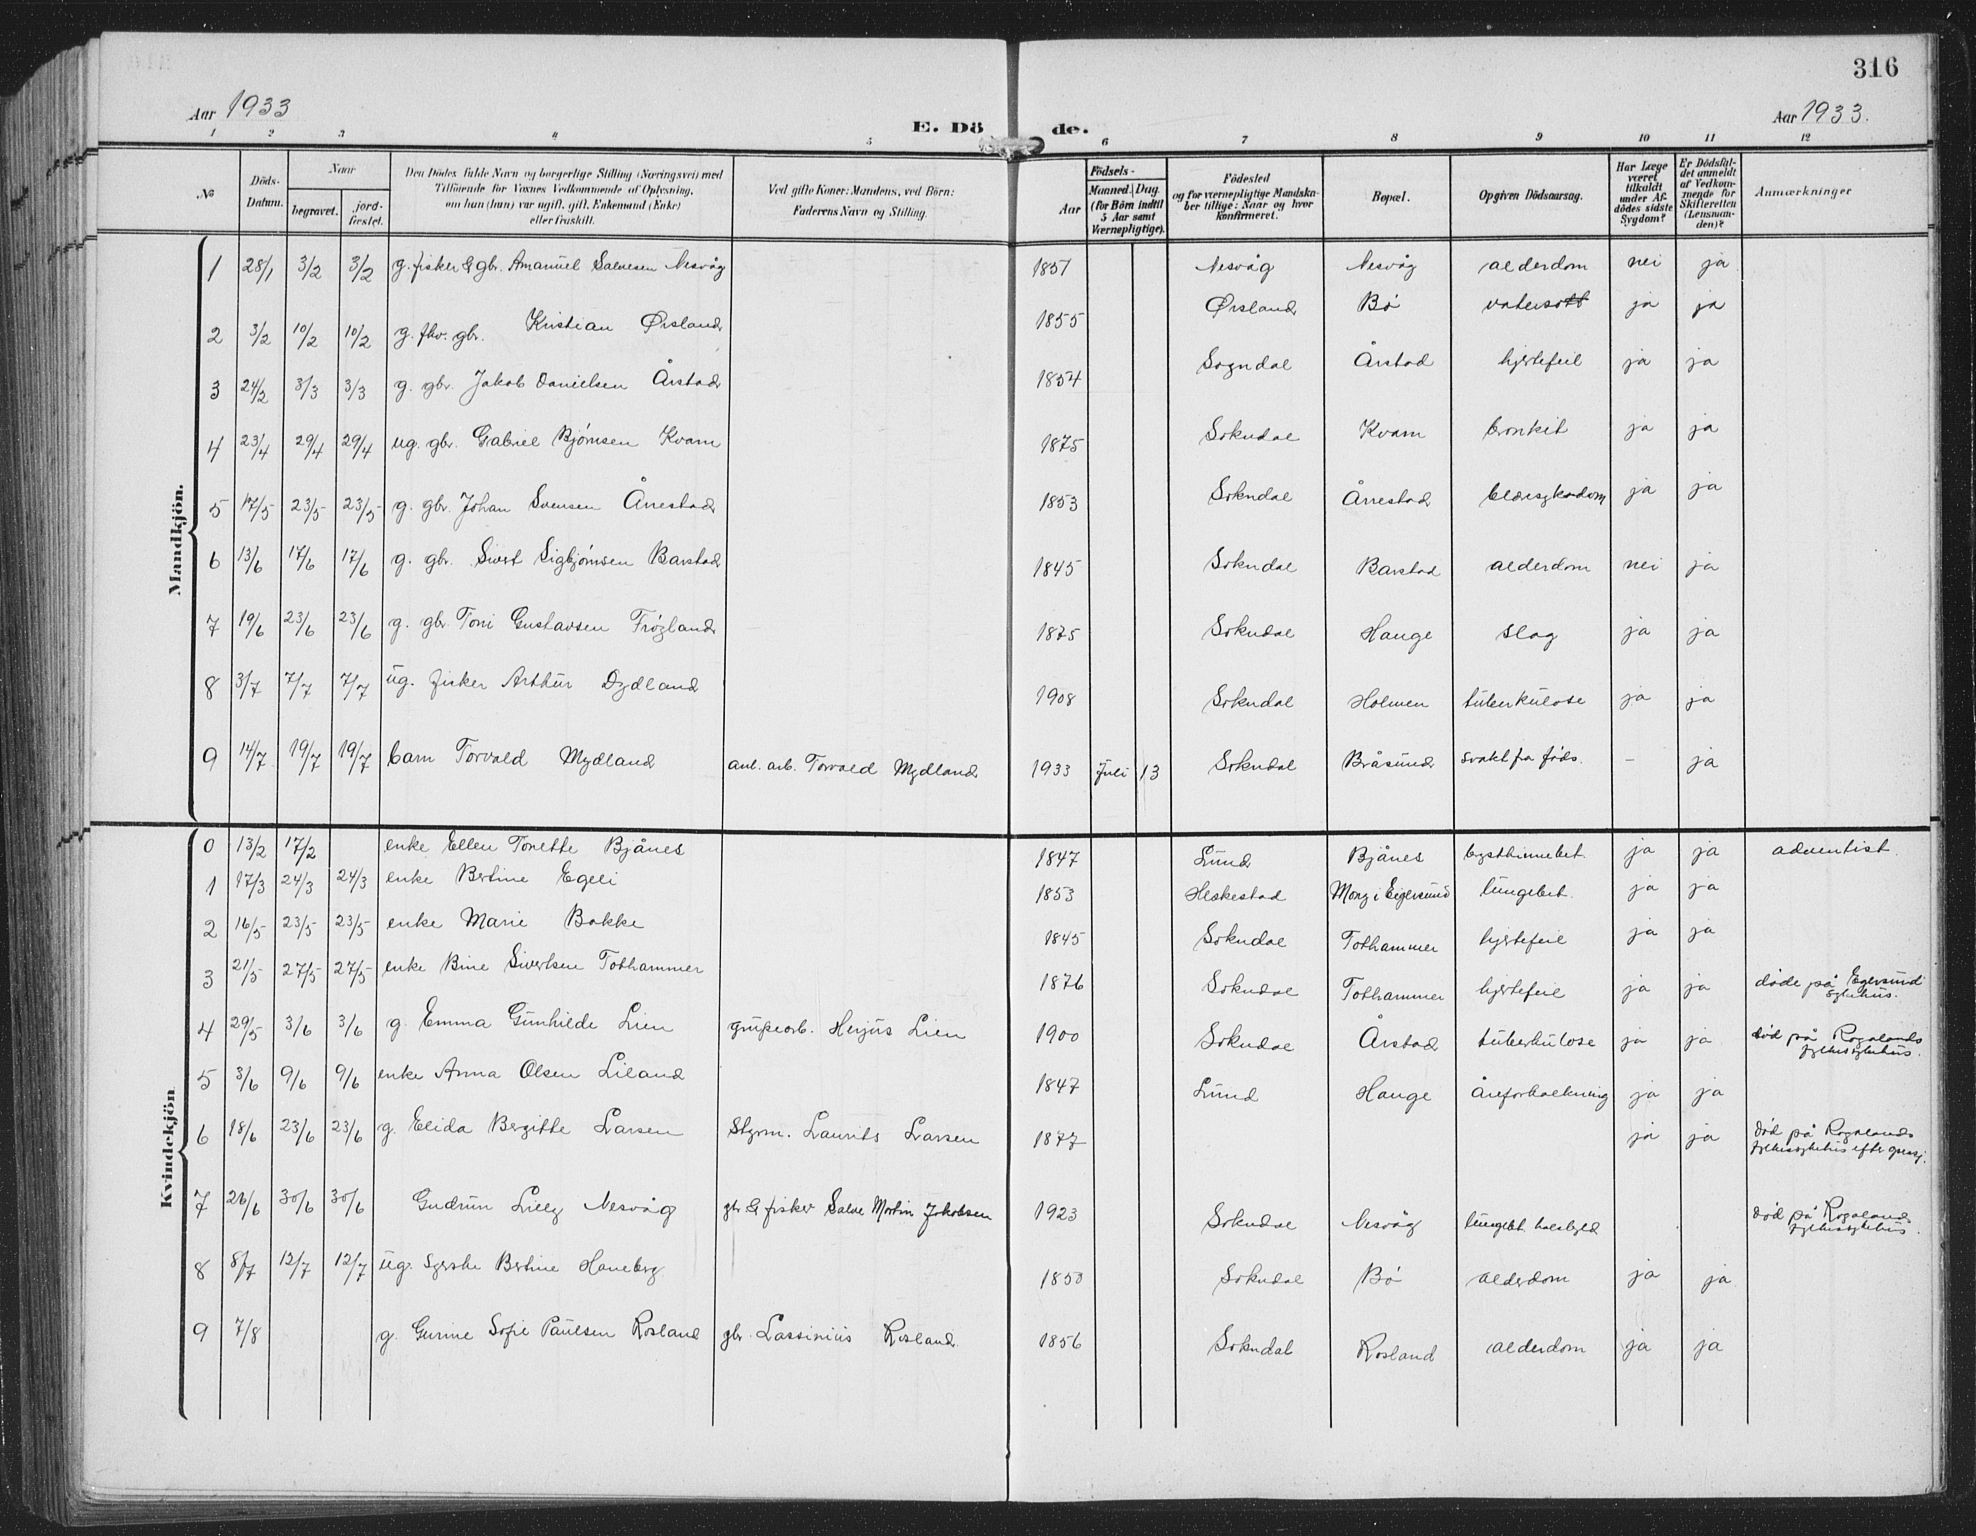 316
Aar 1933
E. Dö de.
Aar 1933.
1 2 3 4 5 6 7 8 9 10 11 12
No
Döds-Datum.
Naar
begravet.
jord-fæstet.
Den Dödes fulde Navn og borgerlige Stilling (Næringsvei) med Tilföiende for Voxnes Vedkommende af Oplysning, om han (hun) var ugift, gift, Enkemand (Enke) eller fraskilt.
Ved gifte Koner: Mandens, ved Börn: Faderens Navn og Stilling.
Födsels-
Aar
Maaned. Dag. (for Börn indtil 5 Aar samt Værnepligtige).
Födested og for værnepligtige Mandskaber tillige: Naar og hvor konfirmeret.
Bopæl.
Opgiven Dödsaarsag.
Har Læge været tilkaldt under Afdödes sidste Sygdom?
Er Dödsfaldet anmeldt af Vedkommende for Skifteretten (Lensmanden)?
Anmærkninger
Mandkjön.
1 28/1 3/2 3/2 g. fisker & gbr. Amanuel Salvesen Nesvåg 1851 Nesvåg Nesvåg alderdom nei ja
2 3/2 10/2 10/2 g. fhv. gbr. Kristian Ørsland 1855 Ørsland Bø vatersott ja ja
3 24/2 3/3 3/3 g. gbr. Jakob Danielsen Årstad 1854 Sogndal Årstad hjertefeil ja ja
4 23/4 29/4 29/4 ug. gbr. Gabriel Bjørnsen Kvam 1875 Sokndal Kvam bronkit ja ja
5 17/5 23/5 23/5 g. gbr. Johan Svensen Årrestad 1853 Sokndal Årrestad blæresykdom ja ja
6 13/6 17/6 17/6 g. gbr. Sivert Sigbjørnsen Barstad 1845 Sokndal Barstad alderdom nei ja
7 19/6 23/6 23/6 g. gbr. Toni Gustavsen Frøyland 1875 Sokndal Hauge slag ja ja
8 3/7 7/7 7/7 ug. fisker Arthur Dydland 1908 Sokndal Holmen tuberkulose ja ja
9 14/7 19/7 19/7 barn Torvald Mydland anl. arb. Torvald Mydland 1933 Juli 13 Sokndal Bråsund svakt fra føds. - ja
Kvindekjön
0 13/2 17/2 enke Ellen Tonette Bjånes 1847 Lund Bjånes brysthinnebet. ja ja adventist
1 17/3 24/3 24/3 enke Bertine Egeli 1853 Heskestad Mong i Eigersund lungebet. ja ja
2 16/5 23/5 23/5 enke Marie Bakke 1845 Sokndal Tothammer hjertefeil ja ja
3 21/5 27/5 27/5 enke Bine Sivertsen Tothammer 1876 Sokndal Tothammer hjertefeil ja ja døde på Egersund sykehus.
4 29/5 3/6 3/6 g. Emma Gunhilde Lien grubearb. Herjus Lien 1900 Sokndal Årstad tuberkulose ja ja død på Rogalands fylkessykehus.
5 3/6 9/6 9/6 enke Anna Olsen Liland 1847 Lund Hauge åreforkalkning ja ja
6 18/6 23/6 23/6 g. Elida Bergitte Larsen Styrm. Laurits Larsen 1877 ja ja død på Rogalands fylkessykehus efter
7 26/6 30/6 30/6 Gudrun Lilly Nesvåg gbr & fisker Salve Martin Jakobsen 1923 Sokndal Nesvåg lungebet. død på Rogalands fylkessykehus.
8 8/7 12/7 12/7 ug. Syerske Bertine Haneberg 1850 Sokndal Bø alderdom ja ja
9 7/8 g. Gurine Sofie Paulsen Rosland gbr. Lassinius Rosland. 1856 Sokndal Rosland alderdom ja ja